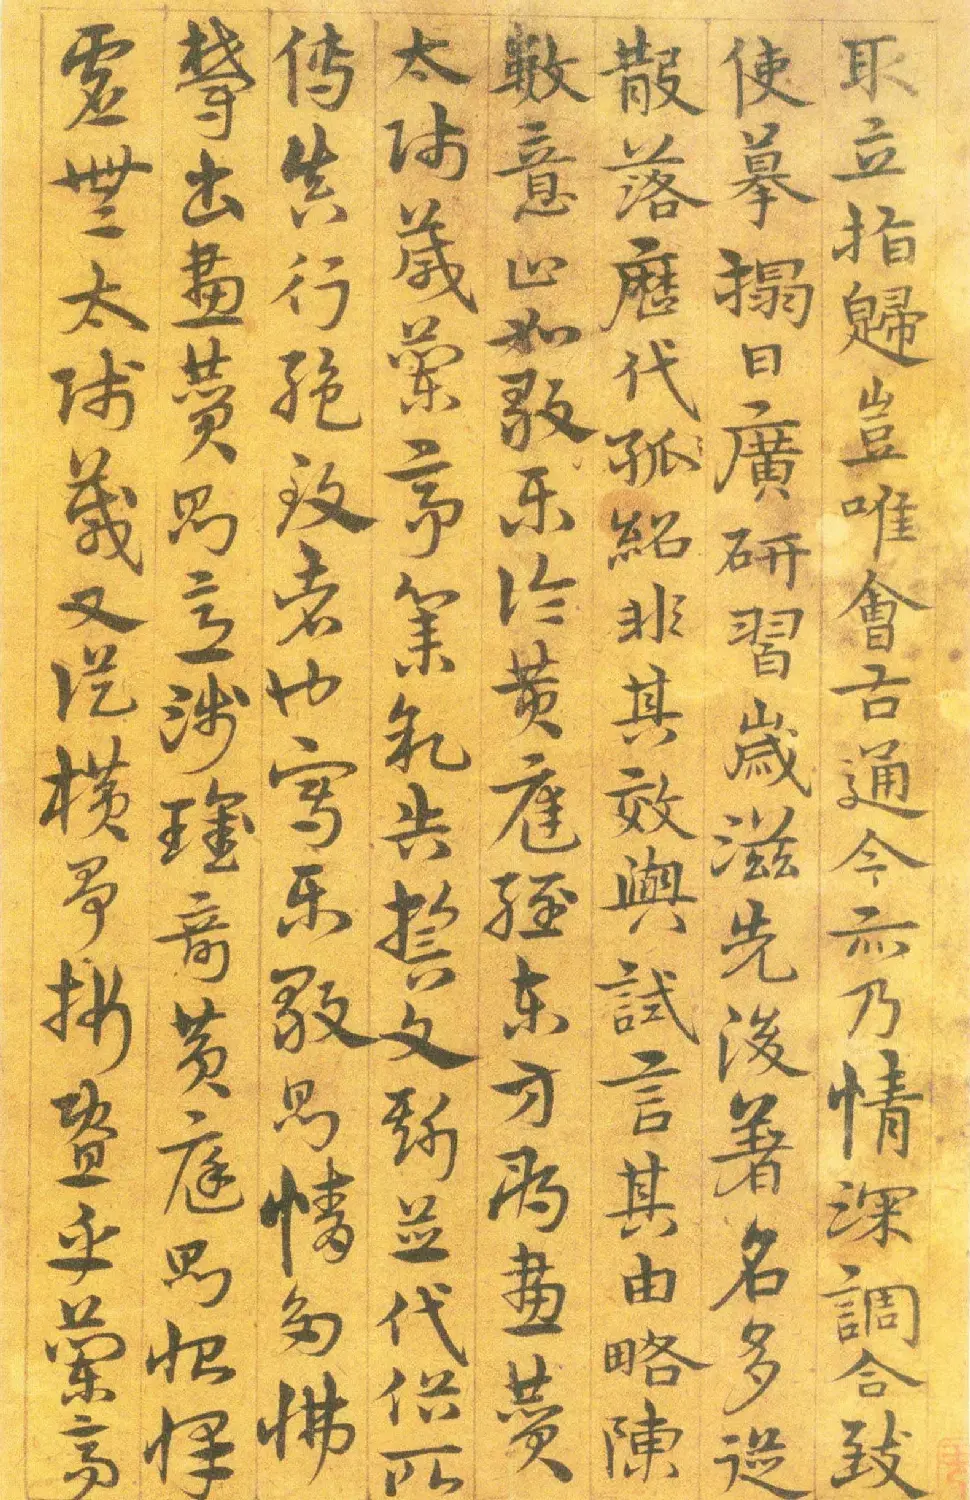 取立指歸豈唯會古通今亦乃情深調合致
使摹搨日廣研習歲滋先後著名多從
散落歷代孤紹非其效與試言其由略陳
數意止如毅樂論黃庭經東方朔畫贊
太師箴蘭亭集序告誓文斯並代俗所
傳真行絕致者也寫樂毅則情多怫
鬱書畫贊則意涉瑰奇黃庭則怡懌
虛無太師箴又從橫爭折暨乎蘭亭